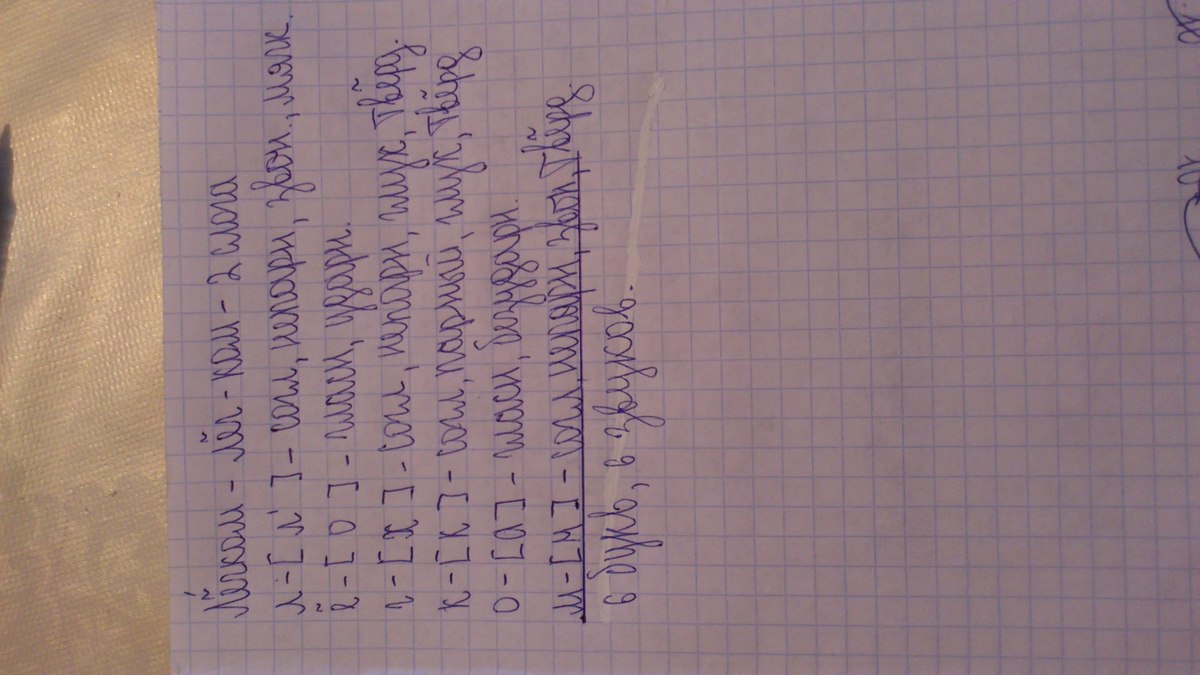 Лёгком - лёг-ком - 2 слога
л - [ л' ] - согл, непарн, звон., мягк.
ё - [ о ] - гласн, ударн.
г - [ х ] - согл, непарн, глух, твёрд.
к - [ к ] - согл, парный, глух, твёрд
о - [ а ] - гласн, безударн.
м - [ м ] - согл, непарн, звон, твёрд.
6 букв, 6 звуков.